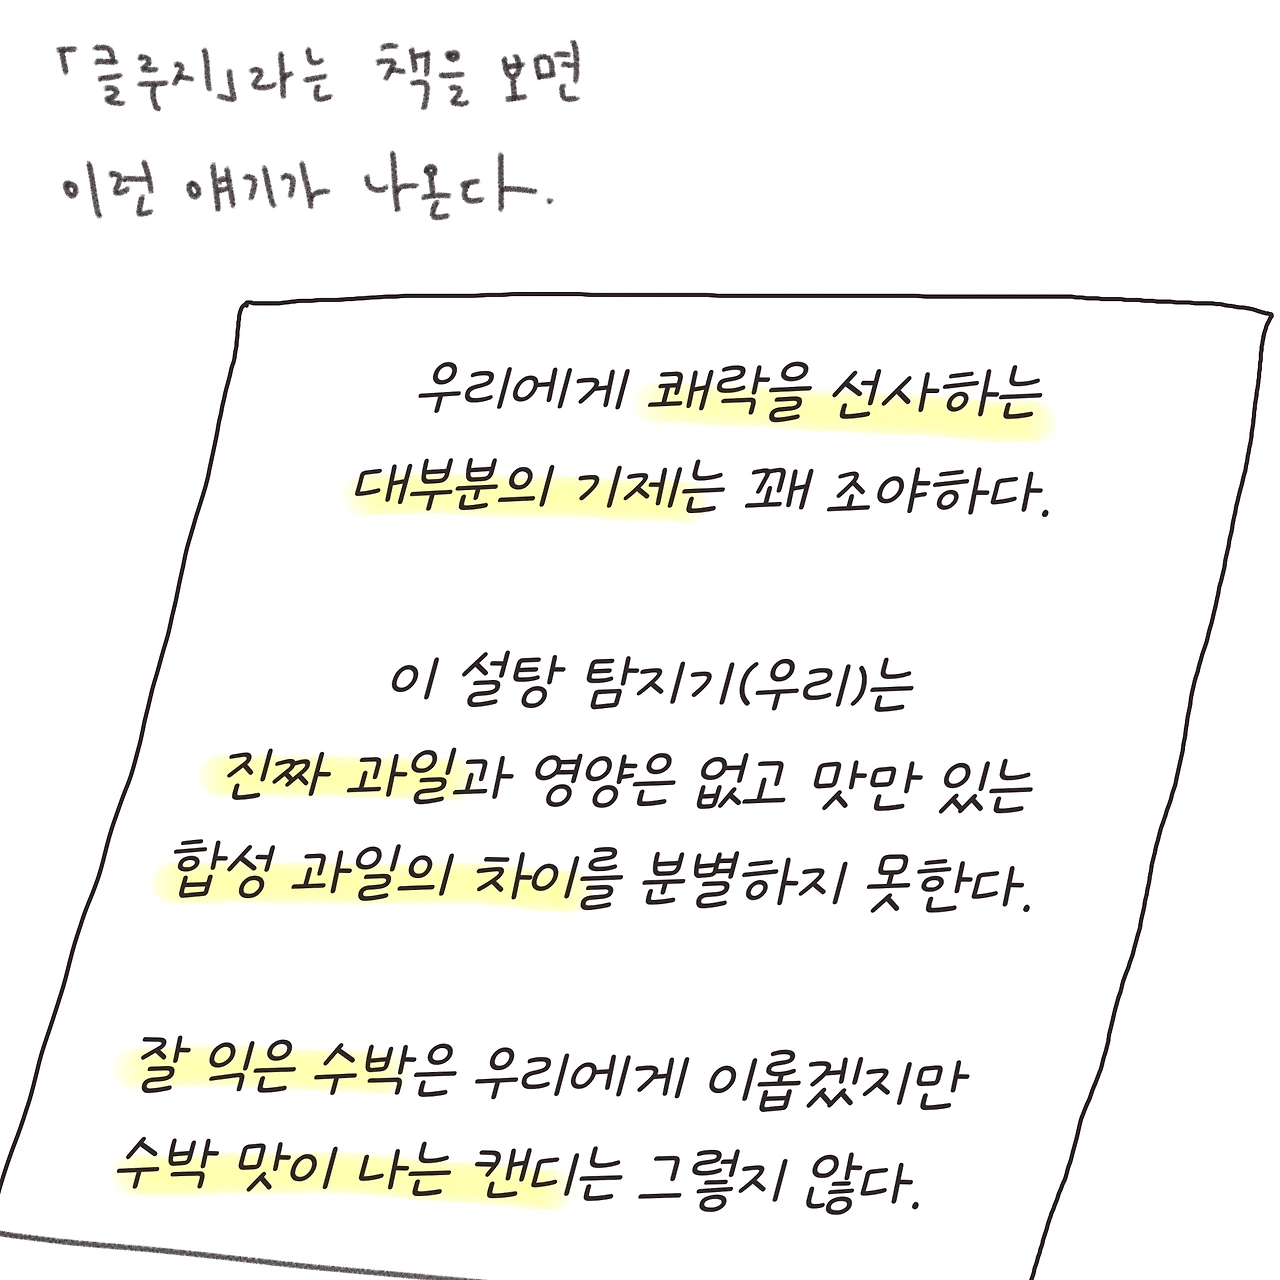 「클루지」라는 책을 보면
이런 얘기가 나온다.
우리에게 쾌락을 선사하는
대부분의 기제는 꽤 조야하다.
이 설탕 탐지기(우리)는
진짜 과일과 영양은 없고 맛만 있는
합성 과일의 차이를 분별하지 못한다.
잘 익은 수박은 우리에게 이롭겠지만
수박 맛이 나는 캔디는 그렇지 않다.